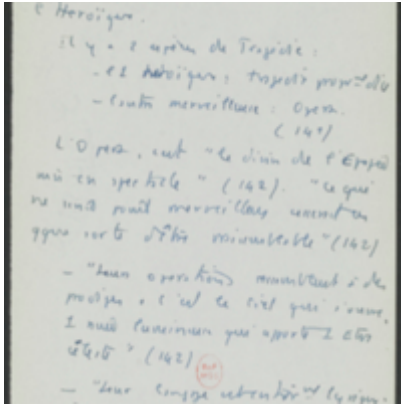 l'Héroïque.
Il y a 2 espèces de Tragédie :
- l'1 héroïque : tragédie propre^nt dite
- l'autre merveilleuse : Opera.
(142)
L'Opera, c'est "le divin de l'Epopée
mis en spectacle" (142). "ce qui
ne serait point merveilleux cesserait en
qque sorte d'être vraisemblable" (142)
- "Leurs opérations ressemblent à des
prodiges, c'est le ciel qui s'ouvre,
1 nuée lumineuse qui apporte 1 être
céleste" (142)
- "Leur langage est entièr^nt lyrique